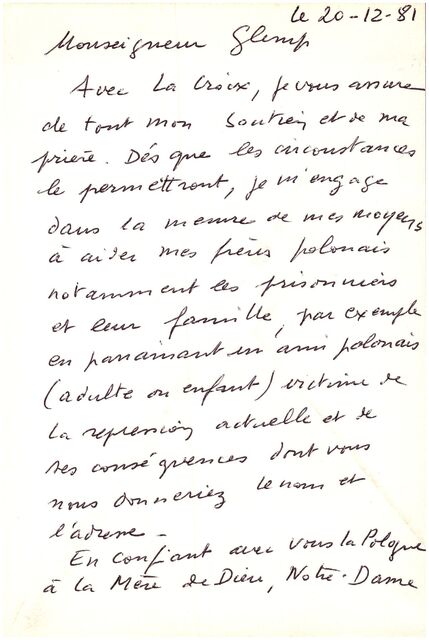 le 20-12-81
Monseigneur Glemp
Avec La Croix, je vous assure
de tout mon soutien et de ma
prière. Dès que les circonstances
le permettront, je m'engage
dans la mesure de mes moyens
à aider mes frères polonais
notamment les prisonniers
et leur famille, par exemple
en parrainant un ami polonais
(adulte ou enfant) victime de
la repression actuelle et de
ses conséquences dont vous
nous donneriez le nom et
l'adresse -
En confiant avec vous la Pologne
à la Mère de Dieu, Notre-Dame